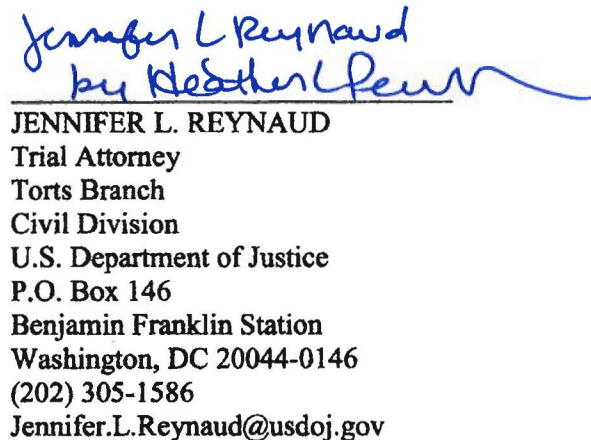 Jennifer L Reynaud
by Heather L
JENNIFER L. REYNAUD
Trial Attorney
Torts Branch
Civil Division
U.S. Department of Justice
P.O. Box 146
Benjamin Franklin Station
Washington, DC 20044-0146
(202) 305-1586
Jennifer.L.Reynaud@usdoj.gov